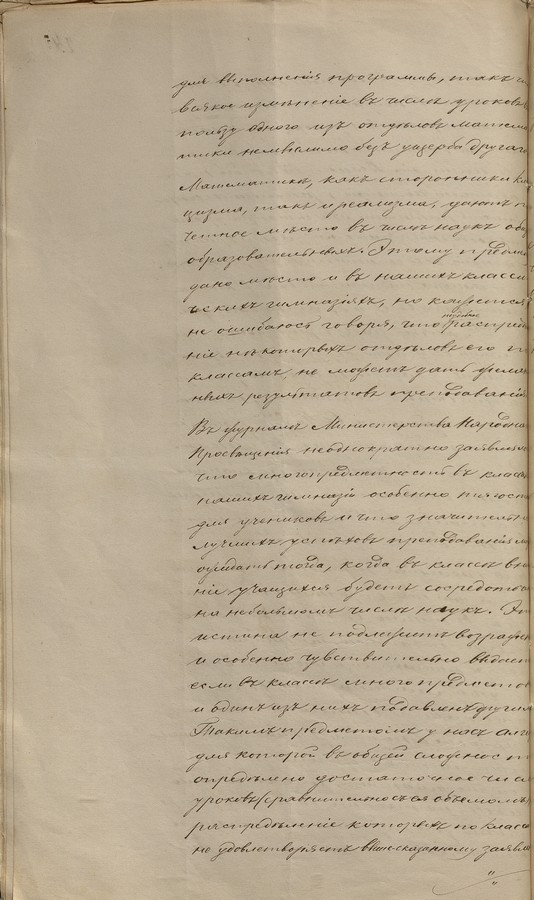 для выполненія программы, такъ
всякое измѣненіе въ числѣ уроковъ
пользу одного изъ отдѣловъ матема
тики немыслимо безъ ущерба другаго
Математикѣ, какъ сторонники кла
цизма, такъ и реализма, даютъ п
четное мѣсто въ числѣ наукъ об
образовательныхъ. Этому предм
дано мѣсто и въ нашихъ класси
ческихъ гимназіяхъ, но кажется
не ошибаюсь говоря, что распредѣ
ніе нѣкоторыхъ отдѣловъ его п
классамъ, не можетъ дать желае
мыхъ результатовъ преподаванія
Въ журналѣ Министерства Народна
Просвѣщенія неоднократно заявлял
что многопредметность въ класса
нашихъ гимназій особенно тягост
для учениковъ и что значительн
лучшихъ успѣховъ преподаванія м
ожидать тогда, когда въ классѣ вни
ніе учащихся будетъ сосредоточ
на небольшомъ числѣ наукъ. Эт
истина не подлежитъ возраже
и особенно чувствительно
если въ классѣ много предметов
и одинъ изъ нихъ подавленъ другим
Такимъ предметомъ у насъ алг
для которой въ общей сложности
опредѣлено достаточное числ
уроковъ (сравнительно съ ея объемомъ)
распредѣленіе которыхъ по класса
не удовлетворяетъ вышесказанному заявле